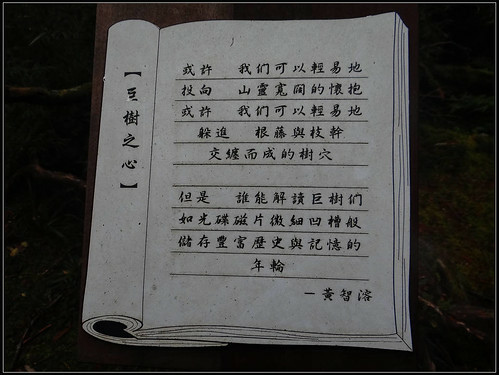 【巨樹之心】
或許 我们可以輕易地
投向 山靈寬闊的懷抱
或許 我们可以輕易地
躲進 根藤與枝幹
交纏而成的樹穴
但是 誰能解讀巨樹们
如光碟磁片微細凹槽般
儲存豐富歷史與記憶的
年輪
－黃智溶